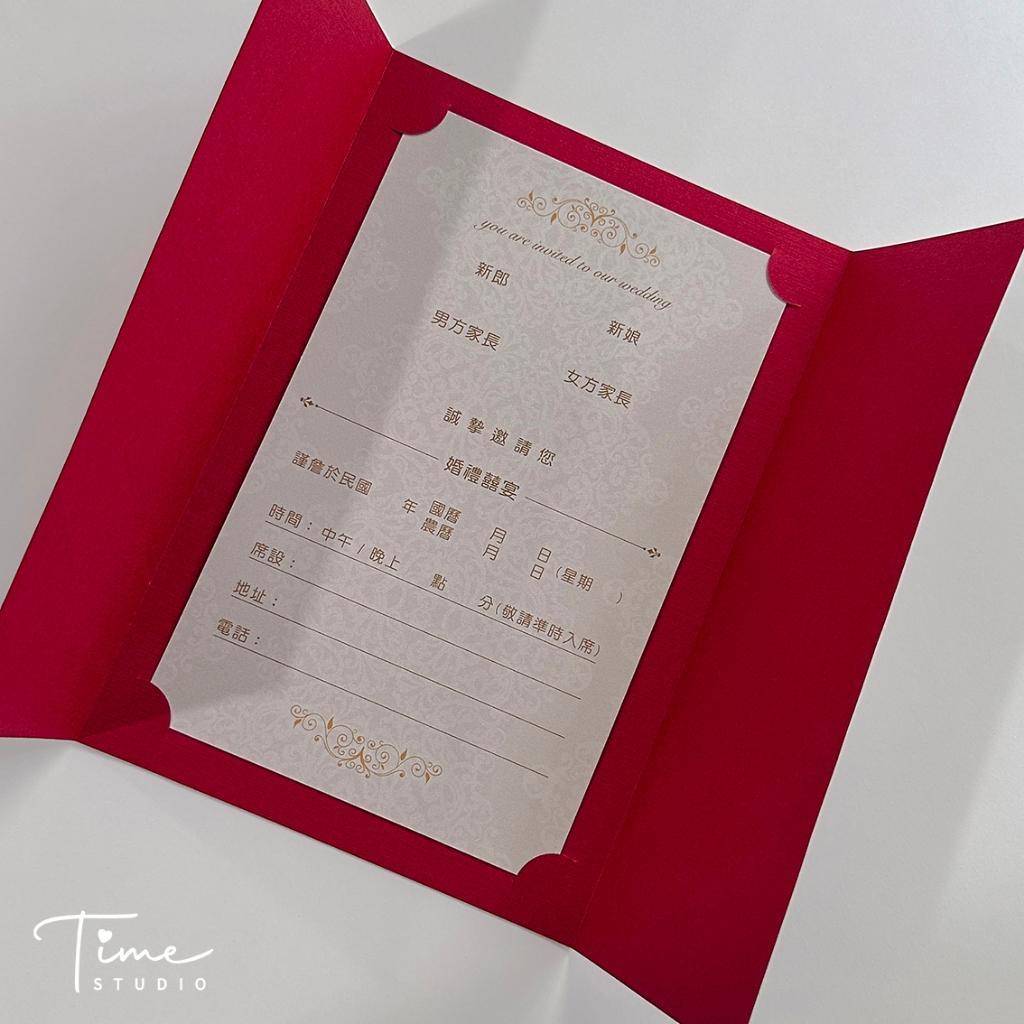 you are invited to our wedding
新郎
新娘
男方家長
女方家長
誠摯邀請您
婚禮囍宴
謹詹於民國 年 國曆 月 日
農曆 月 日 (星期 )
時間：中午 / 晚上 點 分(敬請準時入席)
席設：
地址：
電話：
Time
STUDIO